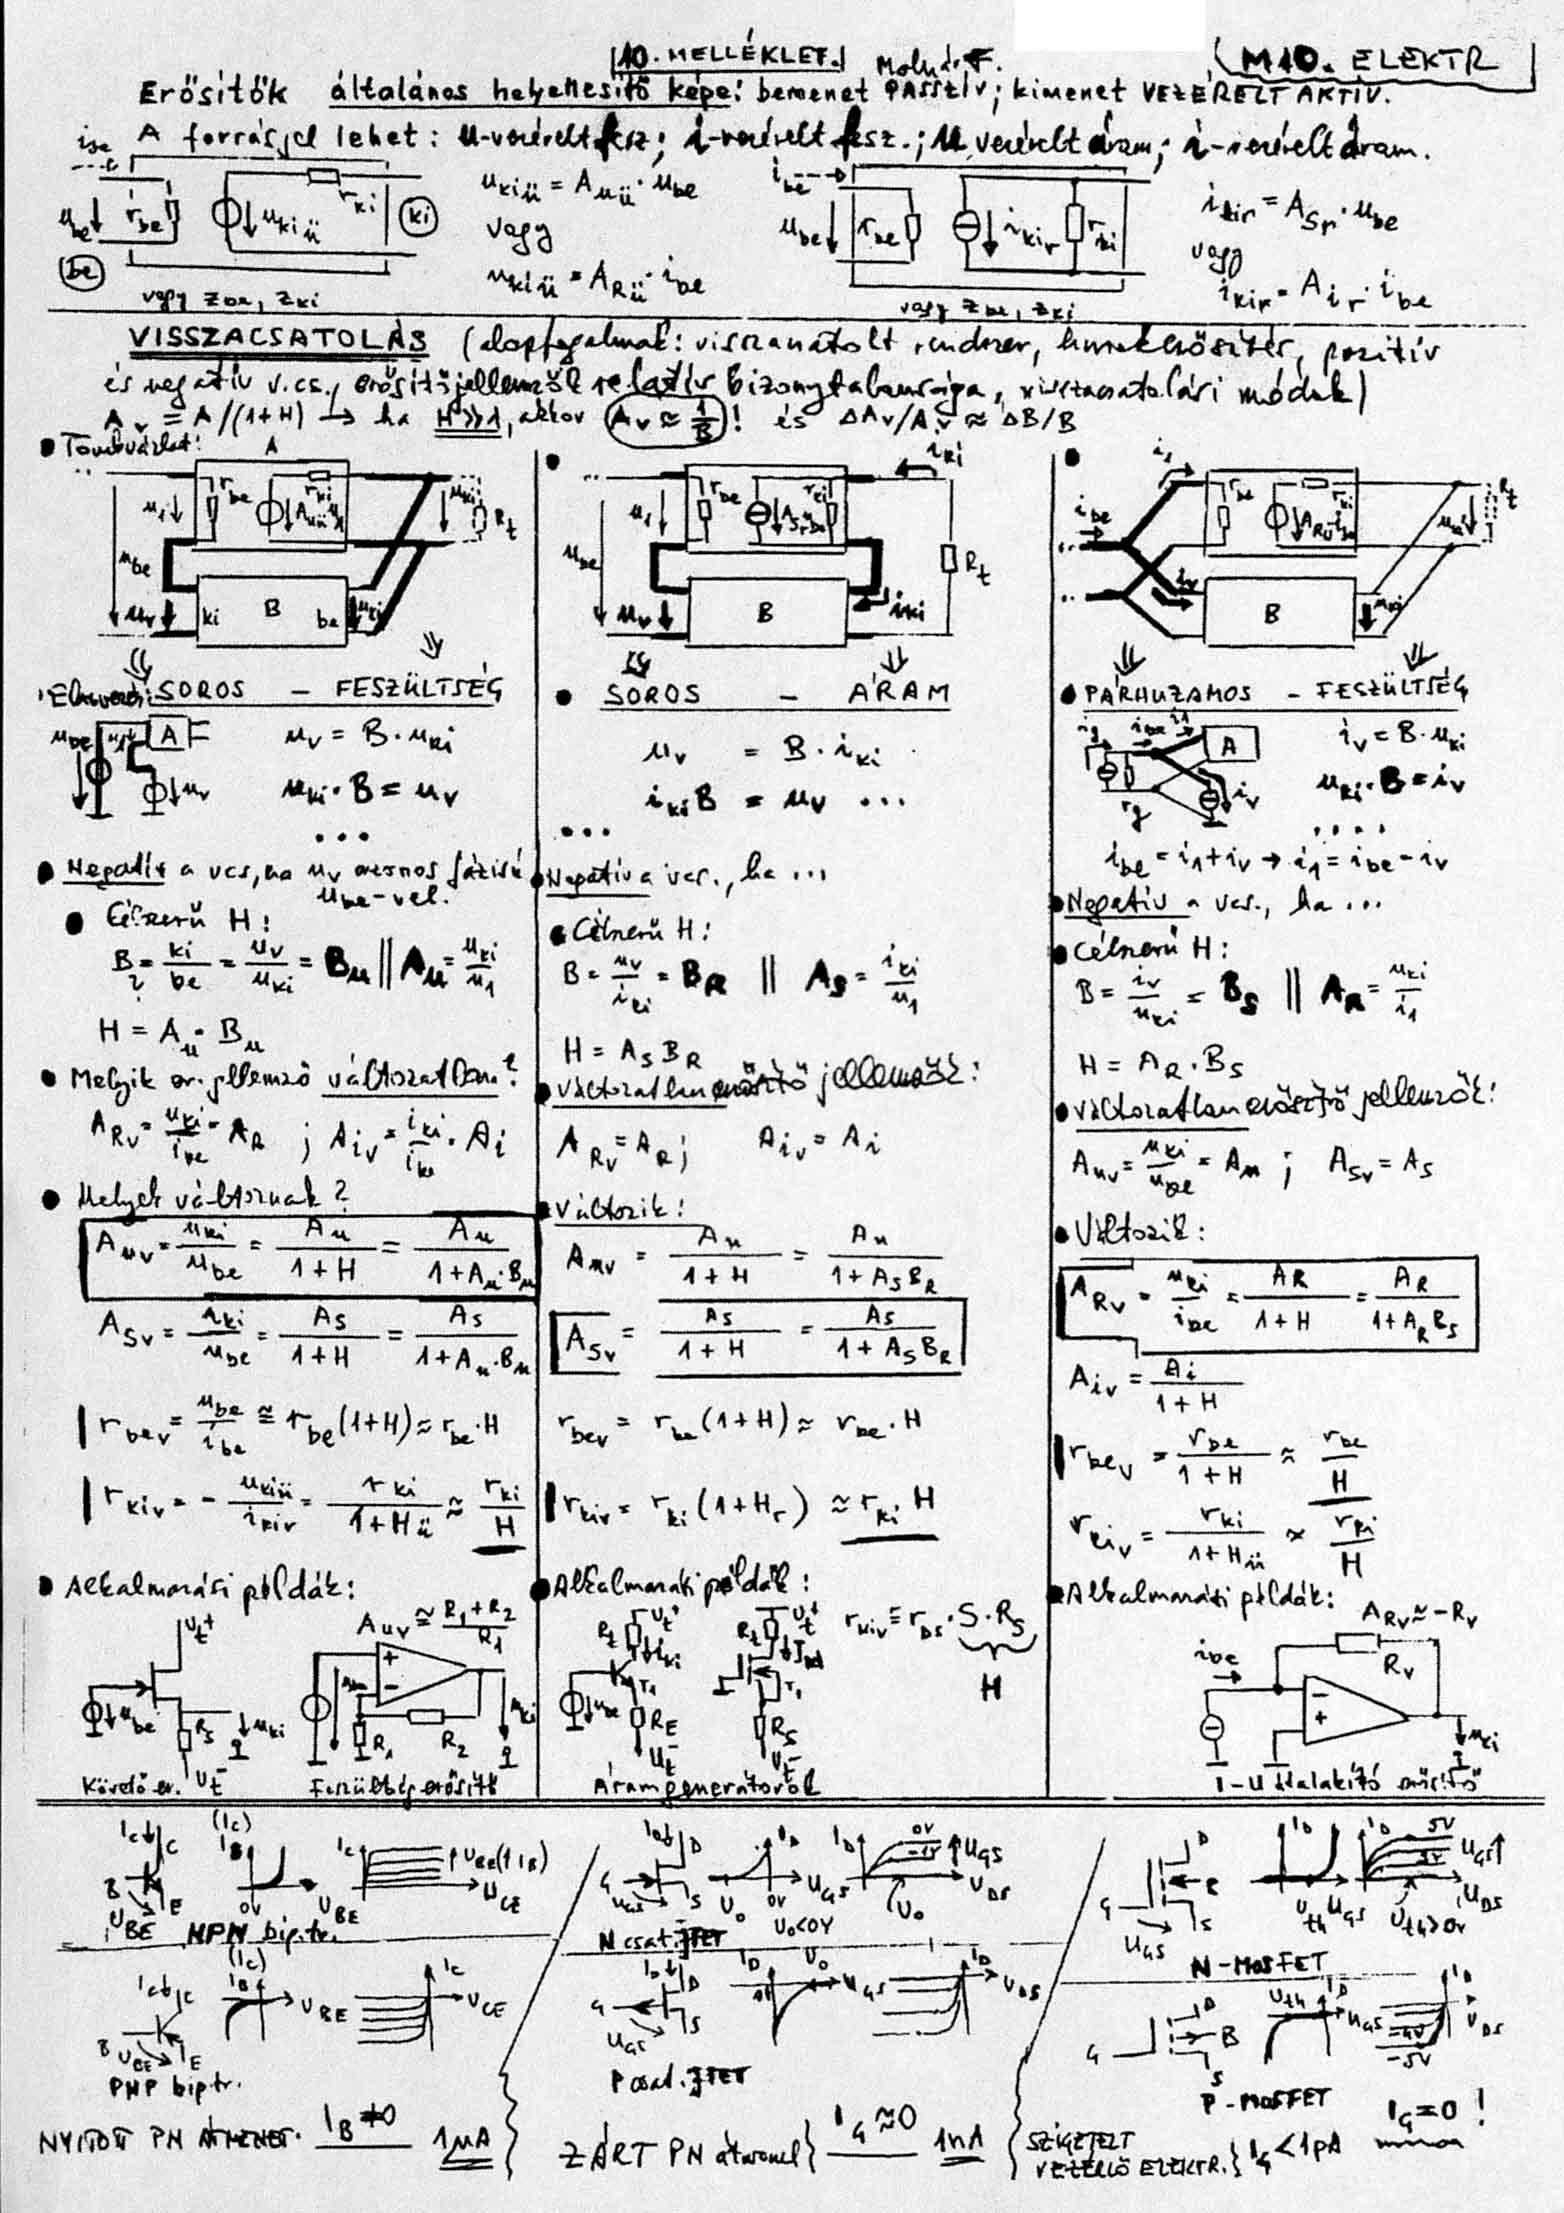 10. MELLÉKLET. Molnár F.
M10. ELEKTR
Erősítők általános helyettesítő képe: bemenet PASSZÍV; kimenet VEZÉRELT AKTÍV.
A forrásjel lehet: u-vezérelt fesz; i-vezérelt fesz.; u vezérelt áram; i-vezérelt áram.
ibe
ube rbe ukiü rki ki
be
vagy zbe, zki
ukiü = Auü · ube
vagy
ukiü = ARü · ibe
ibe
ube rbe ikir rki
vagy zbe, zki
ikir = ASr · ube
vagy
ikir = Air · ibe
VISSZACSATOLÁS (alapfogalmak: visszacsatolt rendszer, hurokerősítés, pozitív
és negatív v.cs., erősítőjellemzők relatív bizonytalansága, visszacsatolási módok)
Av = A/(1+H) → ha H≫1, akkor Av ≈ 1/B ! és ΔAv/Av ≈ ΔB/B
• Tömbvázlat:
A
u1 rbe rki uki Rt
ube
uv ki B be uki
SOROS – FESZÜLTSÉG
ube u1 A uv
uv = B · uki
uki · B = uv
...
• Negatív a vcs, ha uv azonos fázisú
ube-vel.
• Célszerű H:
B = ki/be = uv/uki = Bu || Au = uki/u1
H = Au · Bu
• Melyik er. jellemző változatlan?
ARv = uki/ibe = AR ; Aiv = iki/ibe = Ai
• Melyek változnak?
Auv = uki/ube = Au/1+H = Au/1+Au·Bu
ASv = iki/ube = AS/1+H = AS/1+Au·Bu
rbev = ube/ibe ≅ rbe(1+H) ≈ rbe·H
rkiv = - ukiü/ikiv = rki/1+Hü ≈ rki/H
• Alkalmazási példák:
Ut+
ube RS uki
Ut-
Követő er.
Auv ≅ R1+R2/R1
+
-
R1 R2 uki
Feszültségerősítő
iki
u1 rbe rki
ube Rt
uv B iki
• SOROS – ÁRAM
uv = B · iki
iki B = uv ...
...
• Negatív a vcs., ha ...
• Célszerű H:
B = uv/iki = BR || AS = iki/u1
H = AS BR
• Változatlan erősítő jellemzők:
ARv = AR; Aiv = Ai
• Változik:
Auv = Au/1+H = Au/1+AS BR
ASv = AS/1+H = AS/1+AS BR
rbev = rbe(1+H) ≈ rbe·H
rkiv = rki(1+Hr) ≈ rki H
• Alkalmazási példák:
Rt Ut+ iki Rt Ut+
ube T1 RE Ut- T1 RS Ut-
rkiv ≅ rDS · S · RS
H
Áramgenerátorok
i1
ibe rbe rki Rt
iv B uki
• PÁRHUZAMOS – FESZÜLTSÉG
ig ibe i1 A
rg iv
iv = B · uki
uki · B = iv
....
ibe = i1+iv → i1 = ibe - iv
• Negatív a vcs., ha ...
• Célszerű H:
B = iv/uki = BS || AR = uki/i1
H = AR · BS
• Változatlan erősítő jellemzők:
Auv = uki/ube = Au ; ASv = AS
• Változik:
ARv = uki/ibe = AR/1+H = AR/1+AR BS
Aiv = Ai/1+H
rbev = rbe/1+H ≈ rbe/H
rkiv = rki/1+Hü ≈ rki/H
• Alkalmazási példák:
ARv ≈ -Rv
ibe Rv
-
+
uki
I-U átalakító erősítő
IC C B E UBE
(IC) IB 0V UBE
IC UBE(↑IB) UCE
NPN bip.tr.
IC C B UBE E
(IC) IB UBE
IC UCE
PNP bip.tr.
NYITOTT PN ÁTMENET. IB ≠ 0 1µA
ID D G UGS S
ID U0 0V UGS U0<0V
ID 0V -1V UGS U0 UDS
N csat. JFET
ID D G UGS S
ID U0 UGS
ID UDS
P csat. JFET
ZÁRT PN átmenet} IG ≈ 0 1nA
D G B S UGS
ID Uth UGS
ID 5V UGS↑ Uth>0V UDS
N-MOSFET
D G B S
Uth ID UGS
ID UDS -4V -5V
P-MOSFET
SZIGETELT
VEZÉRLŐ ELEKTR.} IG <1pA
IG=0 !